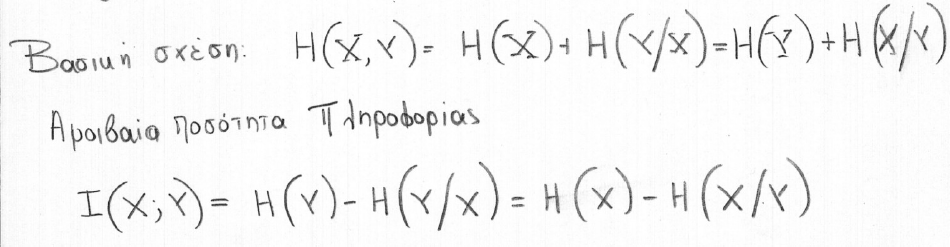 Βασική σχέση: H(X,Y)= H(X)+ H(Y/X)=H(Y)+H(X/Y)
Αμοιβαία ποσότητα Πληροφορίας
I(X;Y)= H(Y)-H(Y/X)= H(X)-H(X/Y)